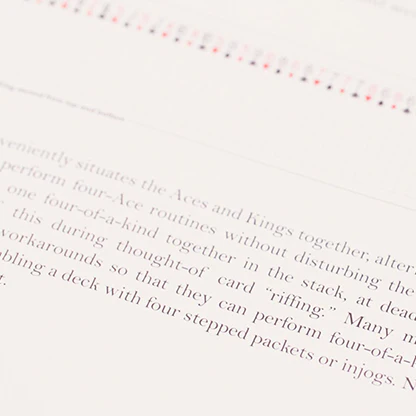 veniently situates the Aces and Kings together, alter
perform four-Ace routines without disturbing the
one four-of-a-kind together in the stack, at dead
this during thought-of card “riffing.” Many m
workarounds so that they can perform four-of-a-k
bling a deck with four stepped packets or injogs. N
t.